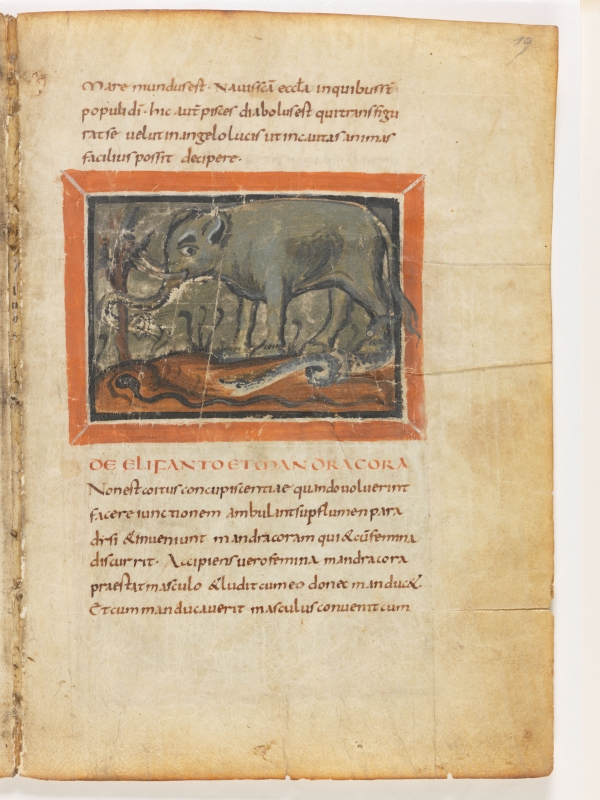 19
Mare mundus est. Naues scā eccła in quibus st̄
populi dī. hic autē pisces diabolus est qui transfigu
rat se uelut in angelo lucis ut incautas animas
facilius possit decipere.
DE ELIFANTO ET MANDRACORA
Non est coitus concupiscentiae quando uoluerint
facere iunctionem ambulant sup flumen para
disi & inueniunt mandracoram qui & cū femina
discurrit. Accipiens uero femina mandracora
praestat masculo & ludit cum eo donec manduc&
Et cum manducauerit masculus conuenit cum